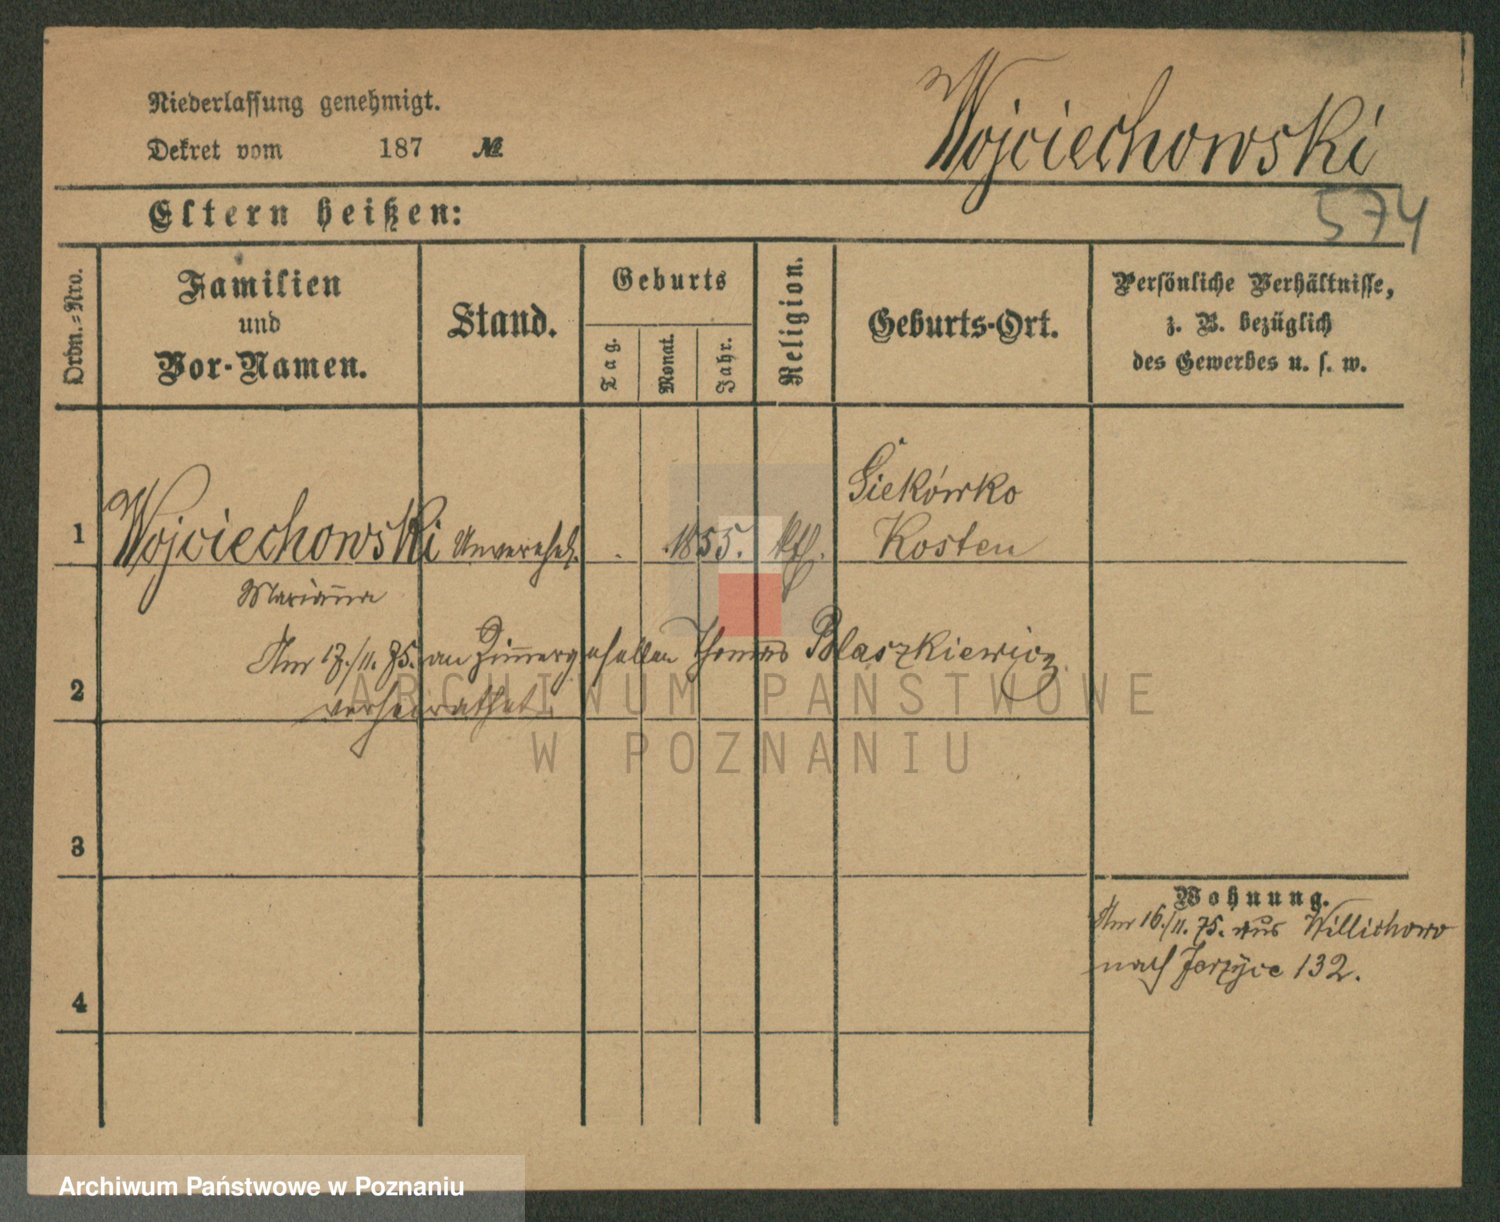 Niederlassung genehmigt.
Dekret vom 187 №
Wojciechowski
574
Eltern heißen:
Ordn.-Nro.
Familien
und
Vor-Namen.
Stand.
Geburts
Tag.
Monat.
Jahr.
Religion.
Geburts-Ort.
Persönliche Verhältnisse,
z. B. bezüglich
des Gewerbes u. s. w.
1 Wojciechowski Unverehel. 1855. kth.
Kosten
Marianna
Am 17./11. 75. an Zimmergesellen Thomas Blaszkiewicz
2
verheirathet.
3
4
Wohnung.
Am 16./11. 75. aus Willichowo
nach Jerzyce 132.
ARCHIWUM PAŃSTWOWE
W POZNANIU
Archiwum Państwowe w Poznaniu